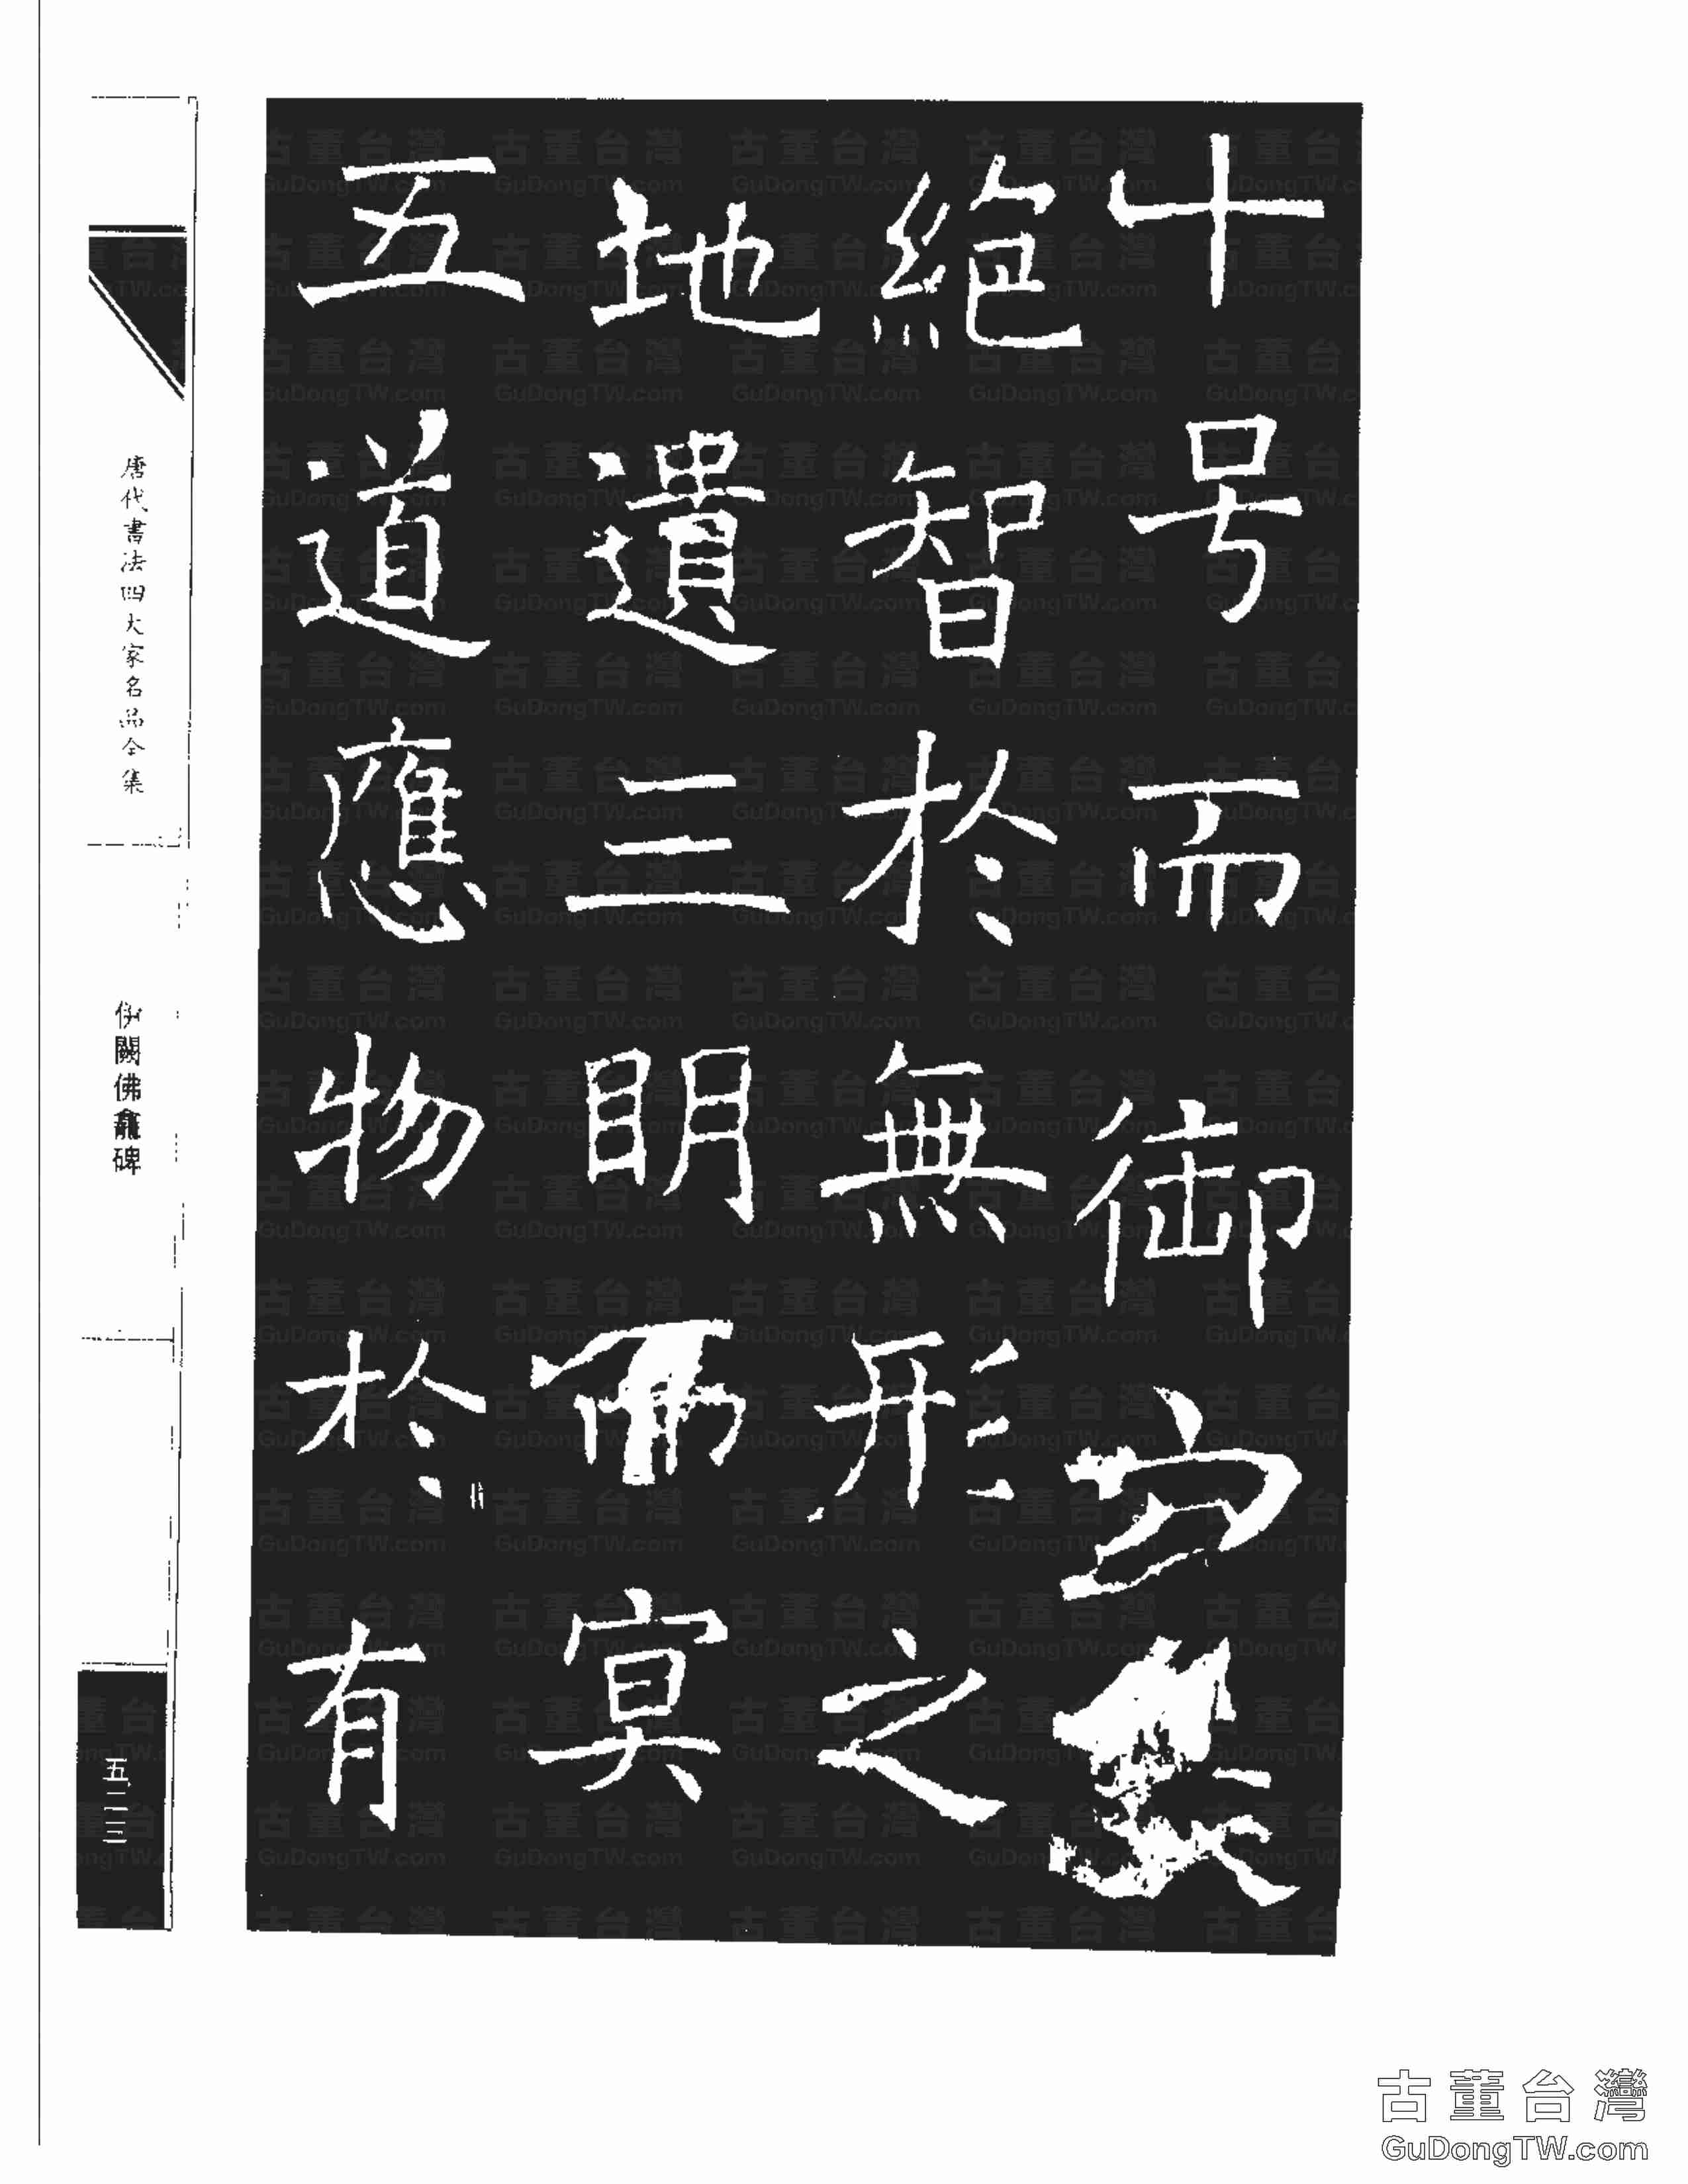 十号而御
絶智於無形之
地遺三眀而冥
五道應物於有
唐代書法四大家名品全集
伊闕佛龕碑
五二三
古董台灣
GuDongTW.com